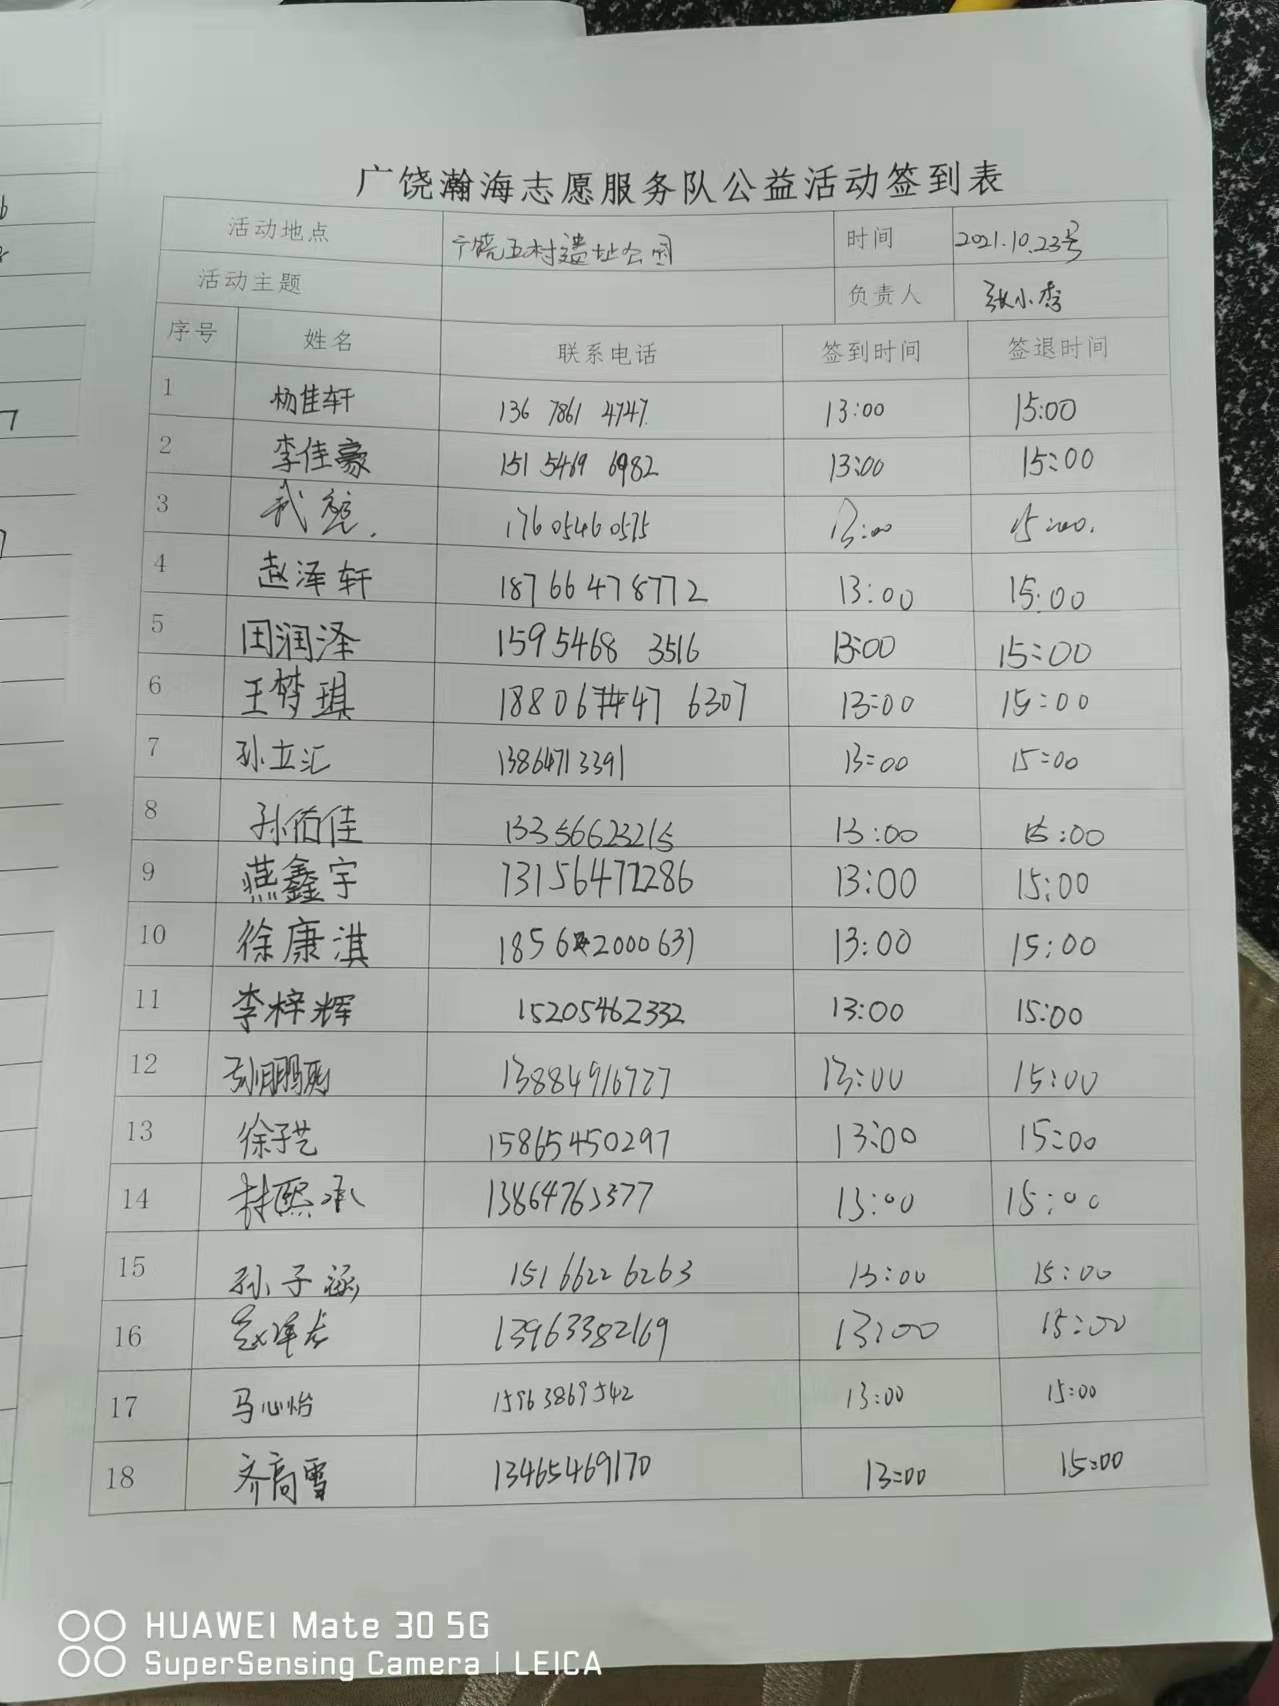 广饶瀚海志愿服务队公益活动签到表
活动地点 广饶五村遗址公园 时间 2021.10.23号
活动主题 负责人 张小李
序号 姓名 联系电话 签到时间 签退时间
1 杨佳轩 136 7861 4747 13:00 15:00
2 李佳豪 151 5469 6982 13:00 15:00
3 武 17605460575 13:00 15:00
4 赵泽轩 18766478772 13:00 15:00
5 田润泽 1595468 3516 13:00 15:00
6 王梦琪 18806 47 6307 13:00 15:00
7 孙立汇 13864713391 13:00 15:00
8 孙佑佳 13356623215 13:00 15:00
9 燕鑫宇 13156471286 13:00 15:00
10 徐康淇 18562000631 13:00 15:00
11 李梓辉 15205462332 13:00 15:00
12 孙鹏 13884916727 13:00 15:00
13 徐子艺 15865450297 13:00 15:00
14 林熙承 13864763377 13:00 15:00
15 孙子涵 15166226263 13:00 15:00
16 13963382169 13:00 15:00
17 马心怡 15963869542 13:00 15:00
18 齐高雪 13465469170 13:00 15:00
HUAWEI Mate 30 5G
SuperSensing Camera | LEICA